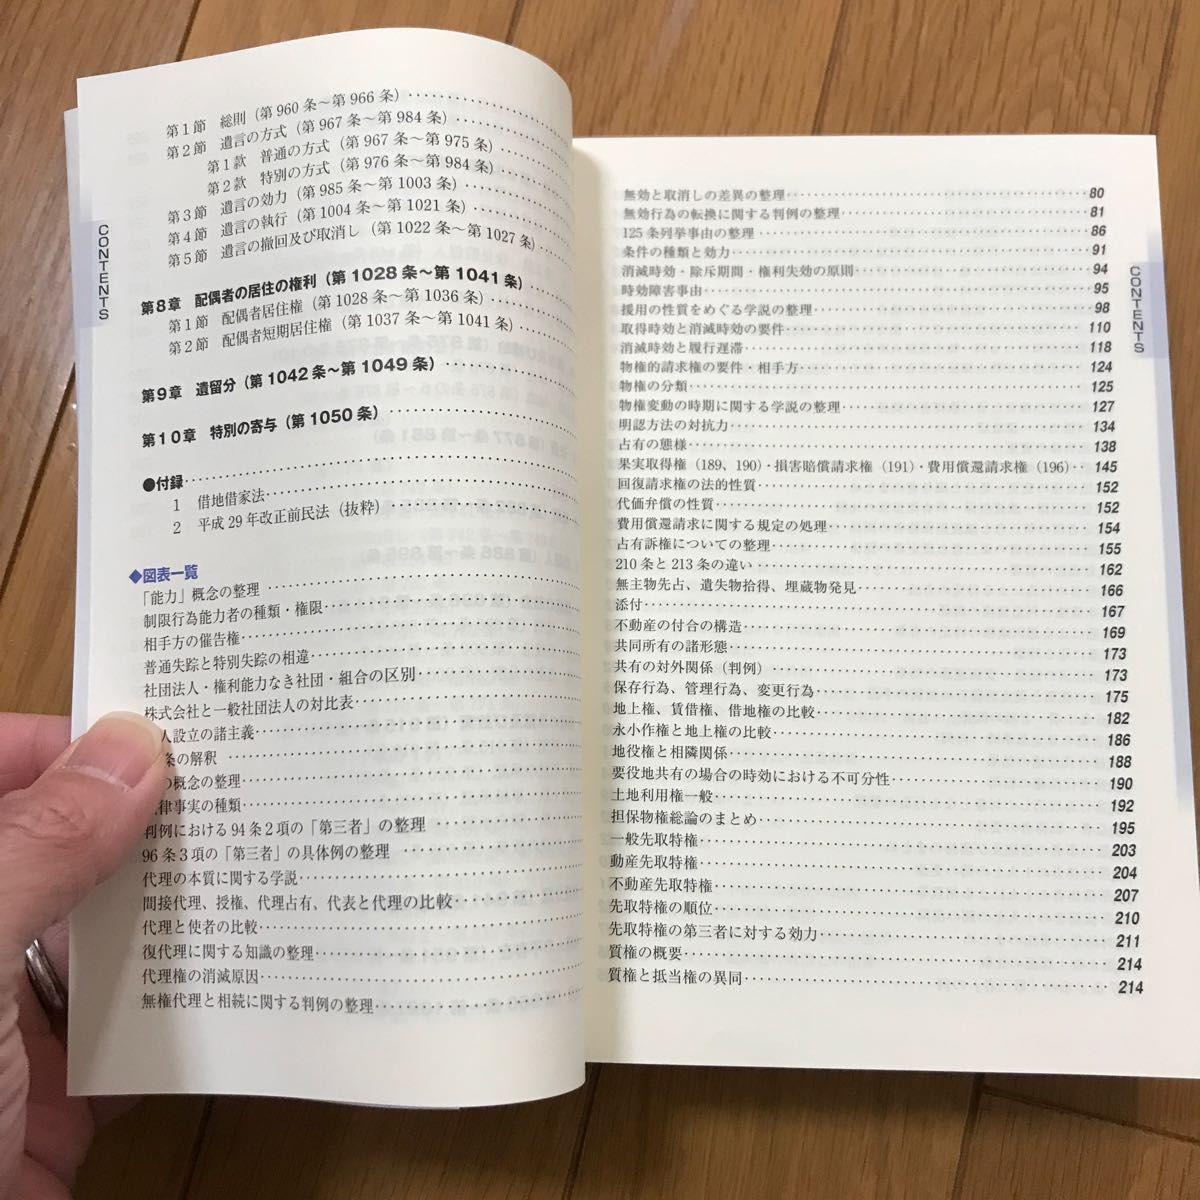 CONTENTS
第1節 総則(第960条~第966条)
第2節 遺言の方式(第967条~第984条)
第1款 普通の方式(第967条~第975条)
第2款 特別の方式(第976条~第984条)
第3節 遺言の効力(第985条~第1003条)
第4節 遺言の執行(第1004条~第1021条)
第5節 遺言の撤回及び取消し(第1022条~第1027条)
第8章 配偶者の居住の権利(第1028条~第1041条)
第1節 配偶者居住権(第1028条~第1036条)
第2節 配偶者短期居住権(第1037条~第1041条)
第9章 遺留分(第1042条~第1049条)
第10章 特別の寄与(第1050条)
●付録
1 借地借家法
2 平成29年改正前民法(抜粋)
◆図表一覧
「能力」概念の整理
制限行為能力者の種類・権限
相手方の催告権
普通失踪と特別失踪の相違
社団法人・権利能力なき社団・組合の区別
株式会社と一般社団法人の対比表
人設立の諸主義
条の解釈
の概念の整理
律事実の種類
判例における94条2項の「第三者」の整理
96条3項の「第三者」の具体例の整理
代理の本質に関する学説
間接代理、授権、代理占有、代表と代理の比較
代理と使者の比較
復代理に関する知識の整理
代理権の消滅原因
無権代理と相続に関する判例の整理
CONTENTS
無効と取消しの差異の整理 80
無効行為の転換に関する判例の整理 81
125条列挙事由の整理 86
条件の種類と効力 91
消滅時効・除斥期間・権利失効の原則 94
時効障害事由 95
援用の性質をめぐる学説の整理 98
取得時効と消滅時効の要件 110
消滅時効と履行遅滞 118
物権的請求権の要件・相手方 124
物権の分類 125
物権変動の時期に関する学説の整理 127
明認方法の対抗力 134
占有の態様 138
果実取得権(189、190)・損害賠償請求権(191)・費用償還請求権(196) 145
回復請求権の法的性質 152
代価弁償の性質 152
費用償還請求に関する規定の処理 154
占有訴権についての整理 155
210条と213条の違い 162
無主物先占、遺失物拾得、埋蔵物発見 166
添付 167
不動産の付合の構造 169
共同所有の諸形態 173
共有の対外関係(判例) 173
保存行為、管理行為、変更行為 175
地上権、賃借権、借地権の比較 182
永小作権と地上権の比較 186
地役権と相隣関係 188
要役地共有の場合の時効における不可分性 190
土地利用権一般 192
担保物権総論のまとめ 195
一般先取特権 203
動産先取特権 204
不動産先取特権 207
先取特権の順位 210
先取特権の第三者に対する効力 211
質権の概要 214
質権と抵当権の異同 214